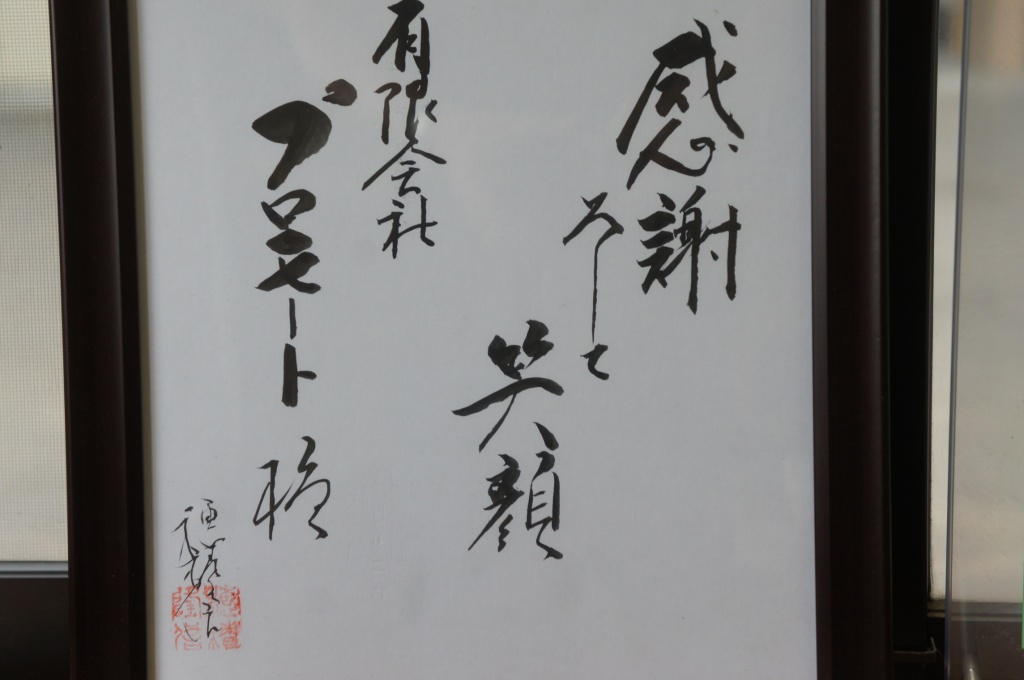 感謝
そして
笑顔
有限会社
プロモート 様